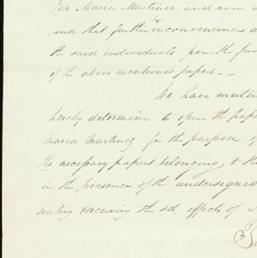 Maria Martinez and now
and that further inconvenience
the said individuals from the
of the above mentioned papers.
We have
hereby determine to open the
Maria Martinez for the purpose of
the necessary papers belonging to the
in the presence of the undersigned
receiving the sd. effects of